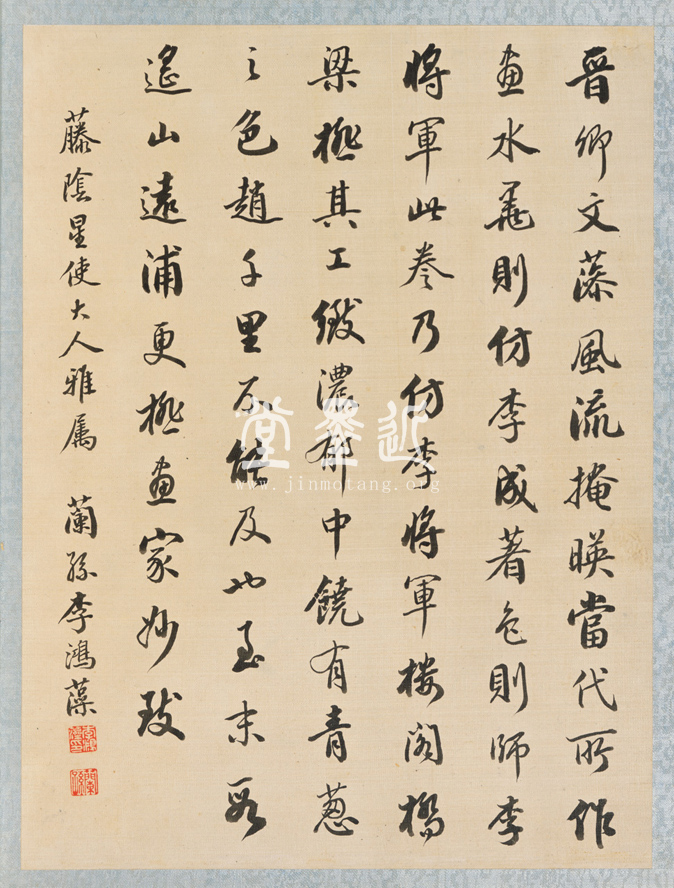 晉卿文藻風流掩暎當代所作
畫水墨則仿李成著色則師李
將軍此卷乃仿李將軍樓閣橋
梁極其工緻濃郁中饒有青葱
之色趙千里不能及也至末段
遙山遠浦更極畫家妙致
藤陰星使大人雅属 蘭孫李鴻藻
近墨堂
www.jinmotang.org